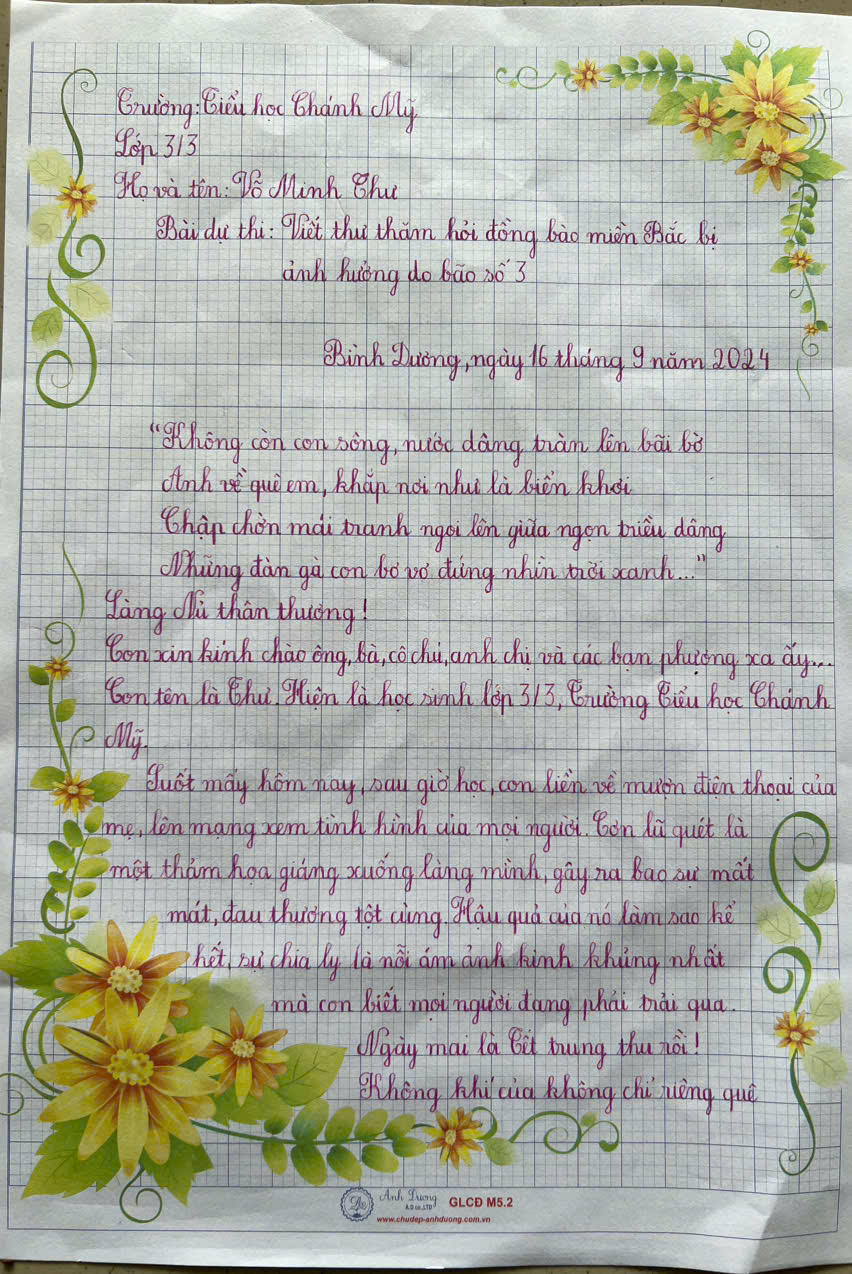 Trường: Tiểu học Chánh Mỹ
Lớp 3/3
Họ và tên: Võ Minh Thư
Bài dự thi: Viết thư thăm hỏi đồng bào miền Bắc bị
ảnh hưởng do bão số 3
Bình Dương, ngày 16 tháng 9 năm 2024
"Không còn con sông, nước dâng tràn lên bãi bờ
Anh về quê em, khắp nơi như là biển khơi
Chập chờn mái tranh ngoi lên giữa ngọn triều dâng
Những đàn gà con bơ vơ đứng nhìn trời xanh..."
Làng Nủ thân thương!
Con xin kính chào ông, bà, cô chú, anh chị và các bạn phương xa ấy...
Con tên là Thư. Hiện là học sinh lớp 3/3, Trường Tiểu học Chánh
Mỹ.
Suốt mấy hôm nay, sau giờ học, con liền về mượn điện thoại của
mẹ, lên mạng xem tình hình của mọi người. Cơn lũ quét là
một thảm họa giáng xuống làng mình, gây ra bao sự mất
mát, đau thương tột cùng. Hậu quả của nó làm sao kể
hết, sự chia ly là nỗi ám ảnh kinh khủng nhất
mà con biết mọi người đang phải trải qua.
Ngày mai là Tết trung thu rồi!
Không khí của không chỉ riêng quê
Anh Dương
A.D co.,LTD
GLCĐ M5.2
www.chudep-anhduong.com.vn